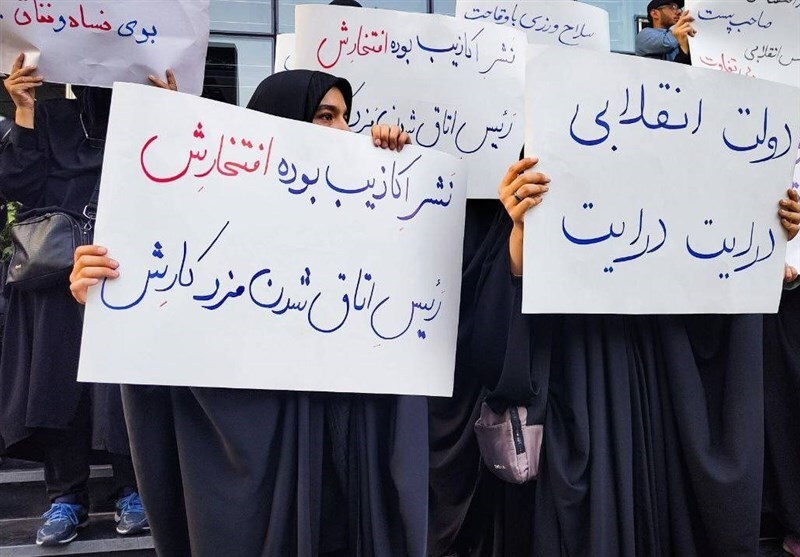 بوی نساه و نتان
نشر اکاذیب بوده افتخارش
رئیس اتاق شدن مزد
سلاح ورزی با وقاحت
صاحب پست
س انقلابی
بی تفاوت
نَشرِ اکاذیب بوده افتخارِش
رَئیسِ اتاق شدن مزد کارِش
دولت انقلابی
درایت درایت